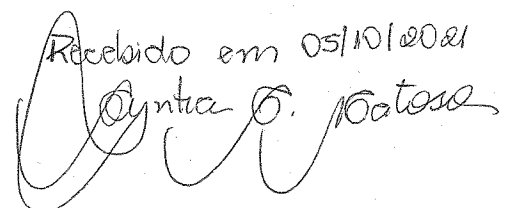 Recebido em 05/10/2021
Cyntia C. Matoso